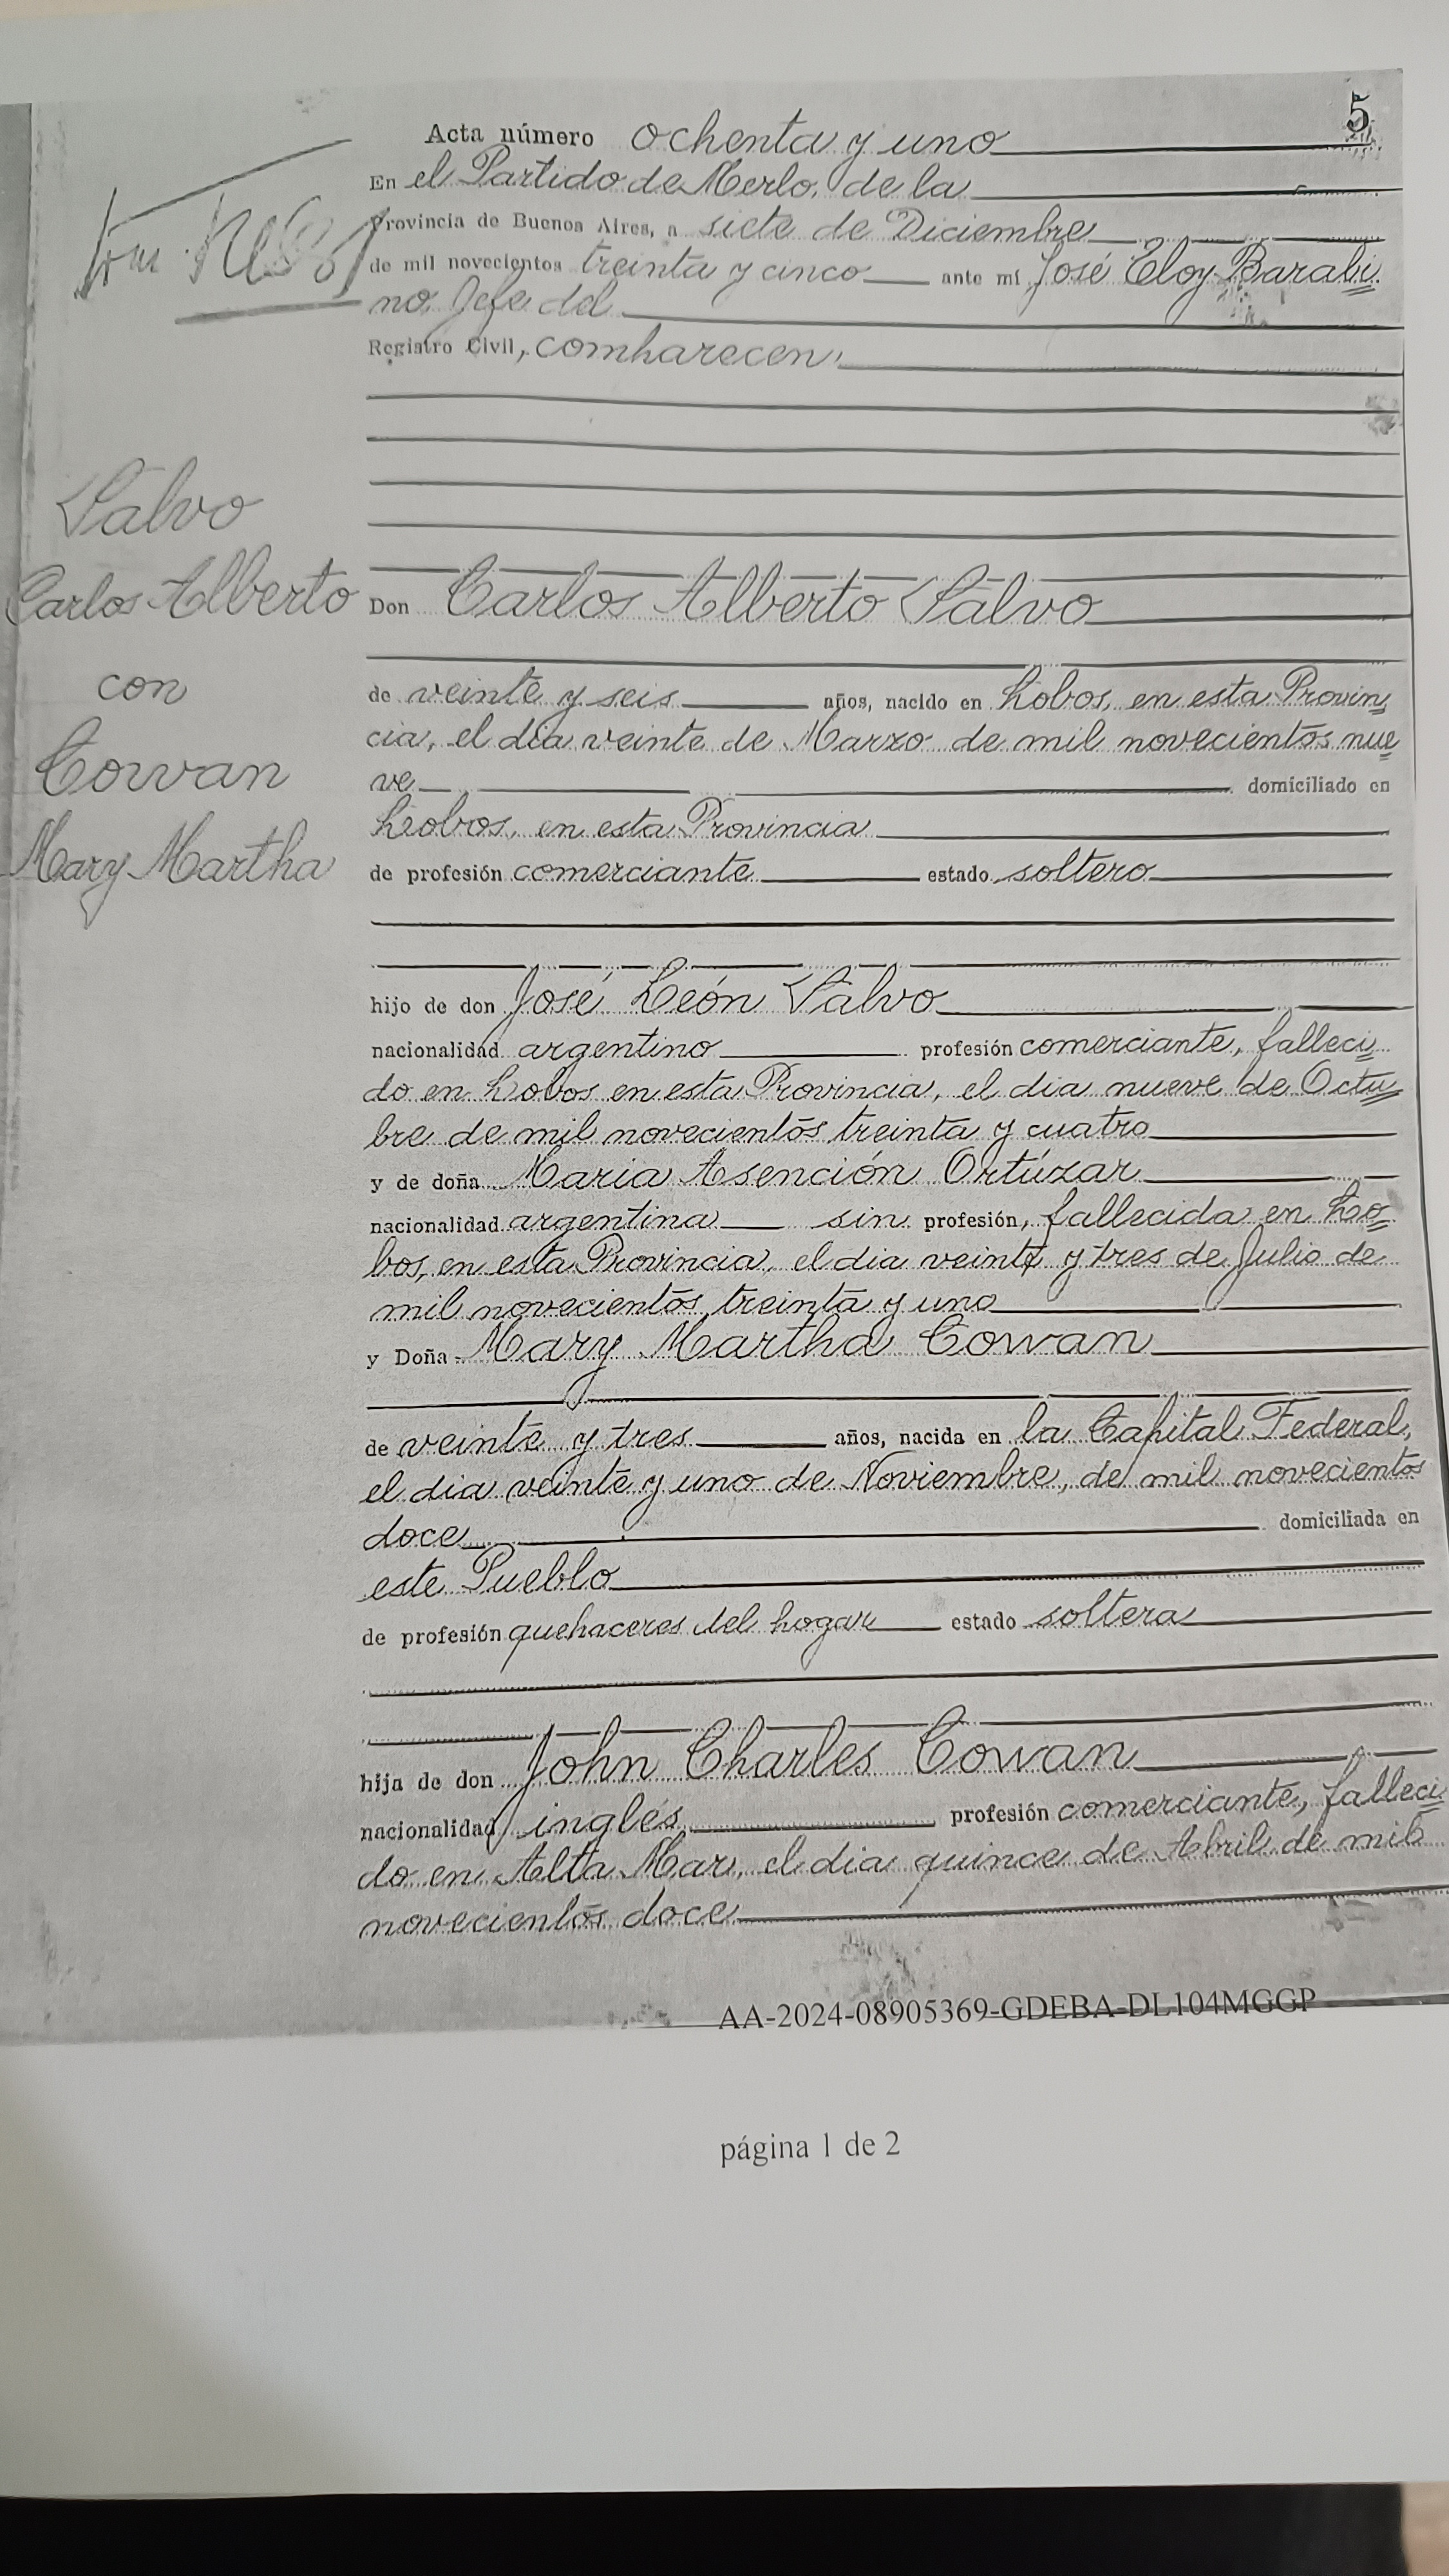 5
Acta número ochenta y uno
En el Partido de Merlo, de la
Provincia de Buenos Aires, a siete de Diciembre
de mil novecientos treinta y cinco ante mi José Eloy Barabi
no, Jefe del
Registro Civil, comparecen,
Salvo
Carlos Alberto
con
Cowan
Mary Martha
Don Carlos Alberto Salvo
de veinte y seis años, nacido en Lobos, en esta Provin
cia, el dia veinte de Marzo de mil novecientos nue
ve domiciliado en
Lobos, en esta Provincia
de profesión comerciante estado soltero
hijo de don José León Salvo
nacionalidad argentino profesión comerciante, falleci
do en Lobos en esta Provincia, el dia nueve de Octu
bre de mil novecientos treinta y cuatro
y de doña Maria Asención Ortúzar
nacionalidad argentina sin profesión, fallecida en Lo
bos, en esta Provincia, el dia veinte y tres de Julio de
mil novecientos treinta y uno
y Doña Mary Martha Cowan
de veinte y tres años, nacida en la Capital Federal,
el dia veinte y uno de Noviembre, de mil novecientos
doce domiciliada en
este Pueblo
de profesión quehaceres del hogar estado soltera
hija de don John Charles Cowan
nacionalidad inglés profesión comerciante, falleci
do en Alta Mar, el dia quince de Abril de mil
novecientos doce
AA-2024-08905369-GDEBA-DL104MGGP
página 1 de 2